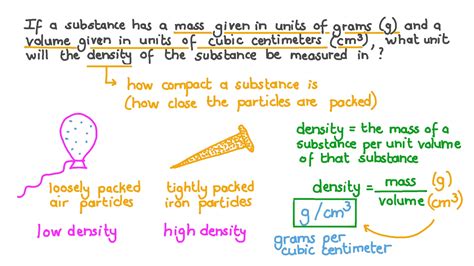 If a substance has a mass given in units of grams (g) and a
volume given in units of cubic centimeters (cm³), what unit
will the density of the substance be measured in?
how compact a substance is
(how close the particles are packed)
loosely packed
air particles
low density
tightly packed
iron particles
high density
density = the mass of a
substance per unit volume
of that substance
density = mass (g)
volume (cm³)
g/cm³
grams per
cubic centimeter